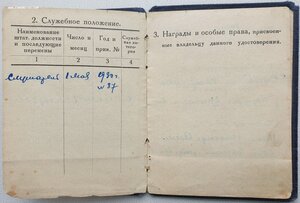 2. Служебное положение.
Наименование штат. должности и последующие перемены
Число и месяц
Год и прик. №
Служеб-ная ка-тего-рия
1 2 3 4
Слушатель 1 мая 1930 г.
№ 37
3. Награды и особые права, присвоен-
ные владельцу данного удостоверения.